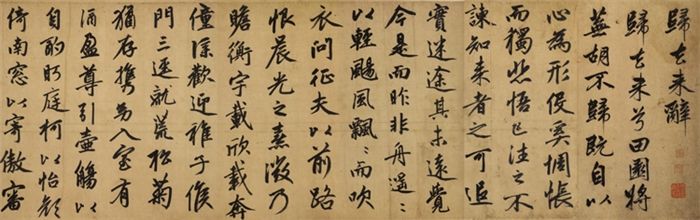 歸去來辭
歸去來兮田園將
蕪胡不歸既自以
心為形役奚惆悵
而獨悲悟已往之不
諫知來者之可追
實迷途其未遠覺
今是而昨非舟遙〻
以輕颺風飄〻而吹
衣問征夫以前路
恨晨光之熹微乃
瞻衡宇載欣載奔
僮僕歡迎稚子候
門三逕就荒松菊
猶存攜幼入室有
酒盈尊引壺觴以
自酌眄庭柯以怡顏
倚南窓以寄傲審